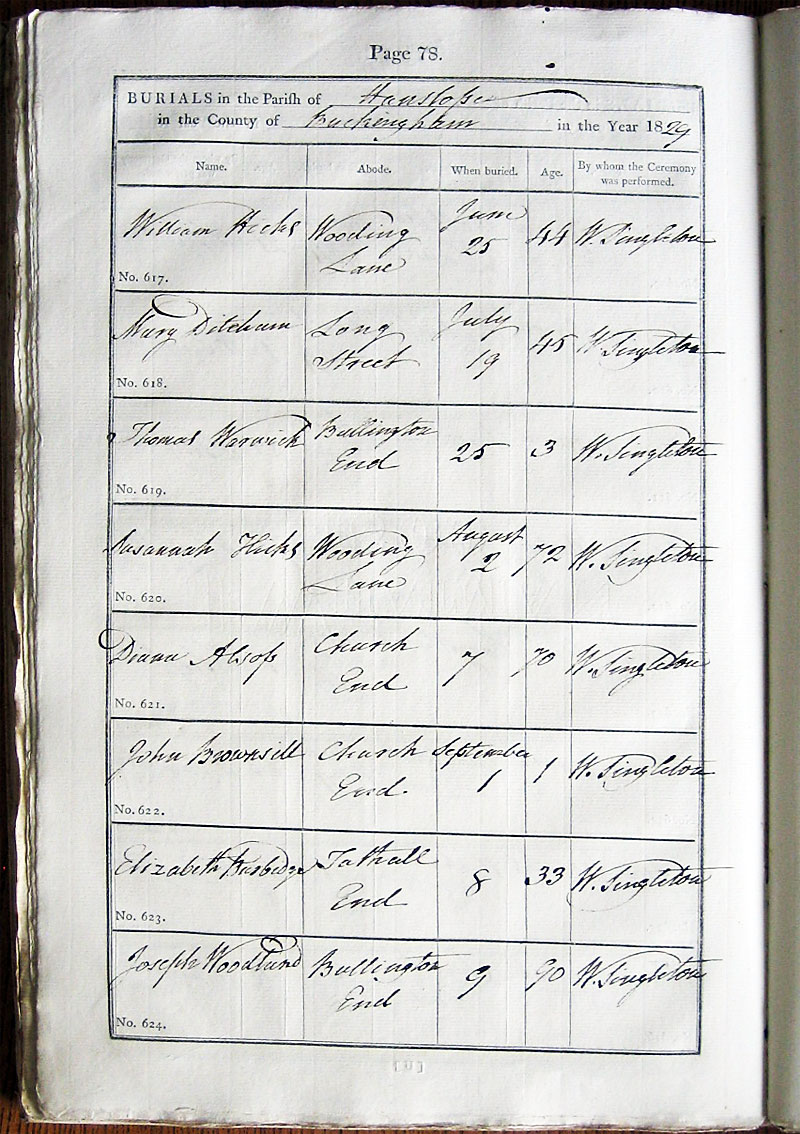 Page 78.
BURIALS in the Parish of Hanslope
in the County of Buckingham in the Year 1829
Name. Abode. When buried. Age. By whom the Ceremony was performed.
William Hicks Wooding Lane June 25 44 W. Singleton
No. 617.
Mary Ditcham Long Street July 19 45 W. Singleton
No. 618.
Thomas Warwick Bullington End 25 3 W. Singleton
No. 619.
Susannah Hicks Wooding Lane August 2 72 W. Singleton
No. 620.
Diana Alsop Church End 7 70 W. Singleton
No. 621.
John Brownsill Church End. September 1 1 W. Singleton
No. 622.
Elizabeth Tathall End 8 33 W. Singleton
No. 623.
Joseph Woodland Bullington End 9 90 W. Singleton
No. 624.